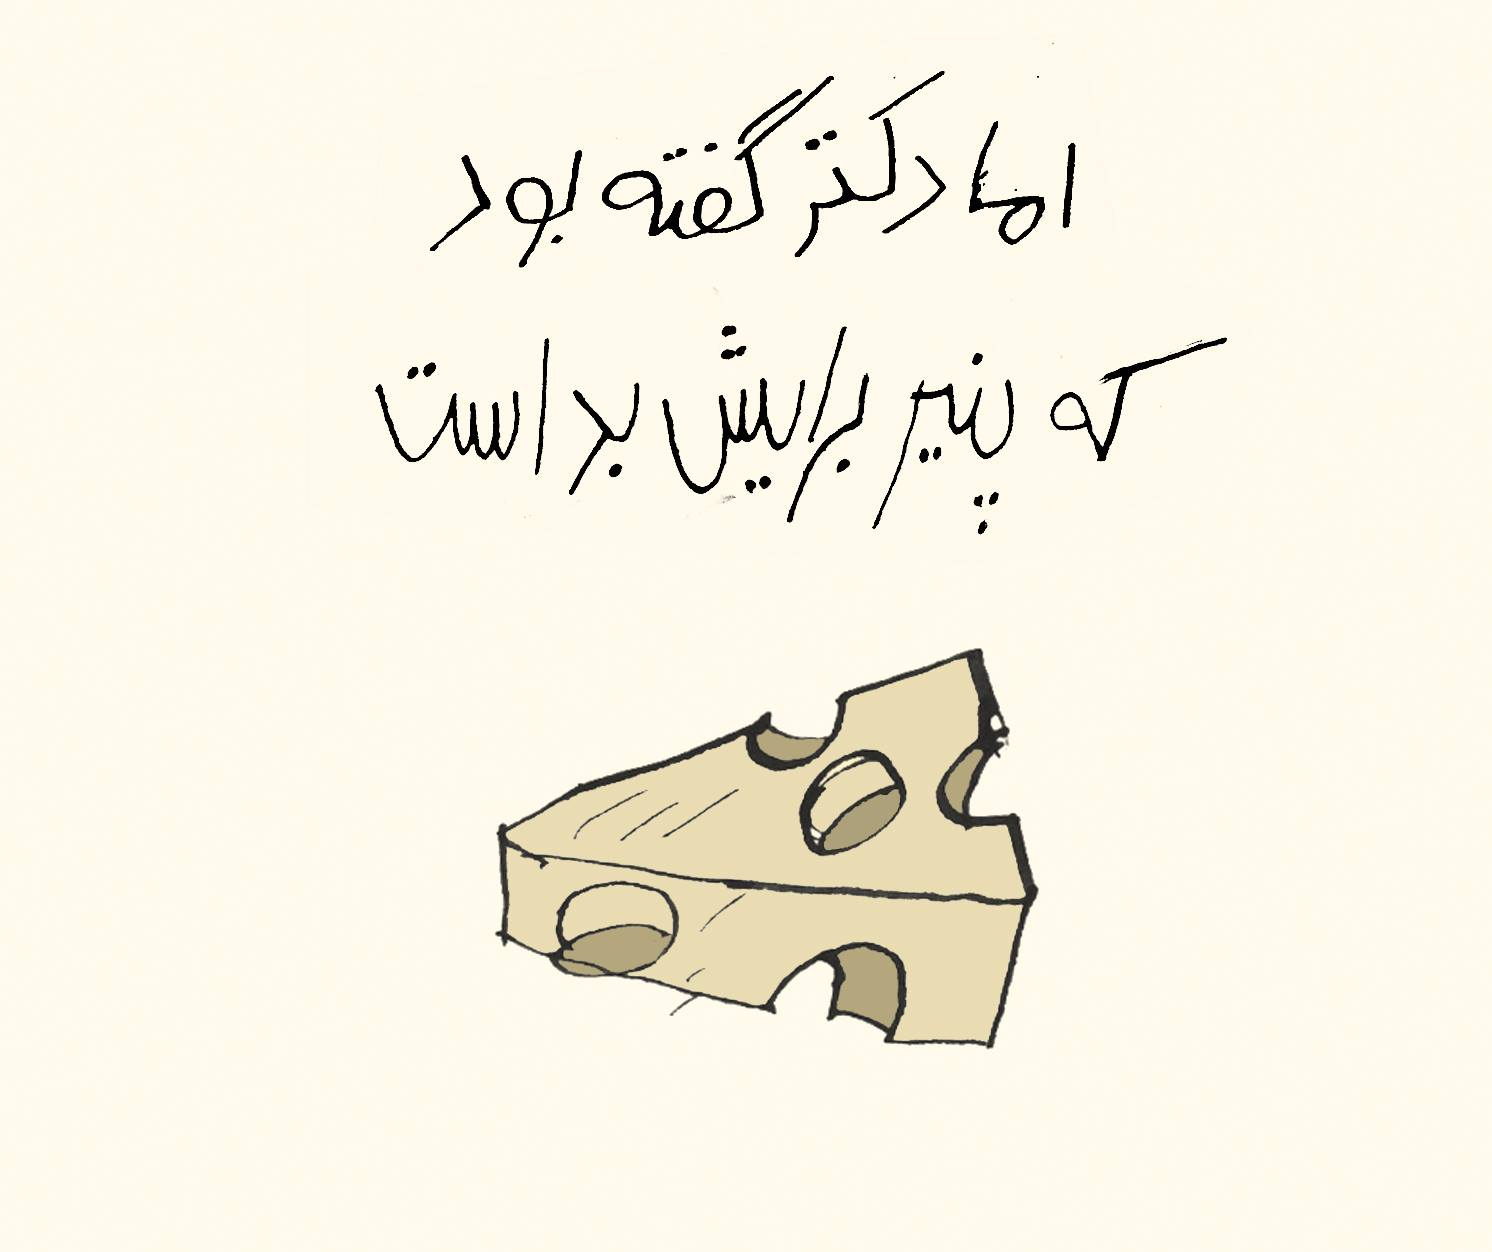 اما دکتر گفته بود
که پنیر برایش بد است